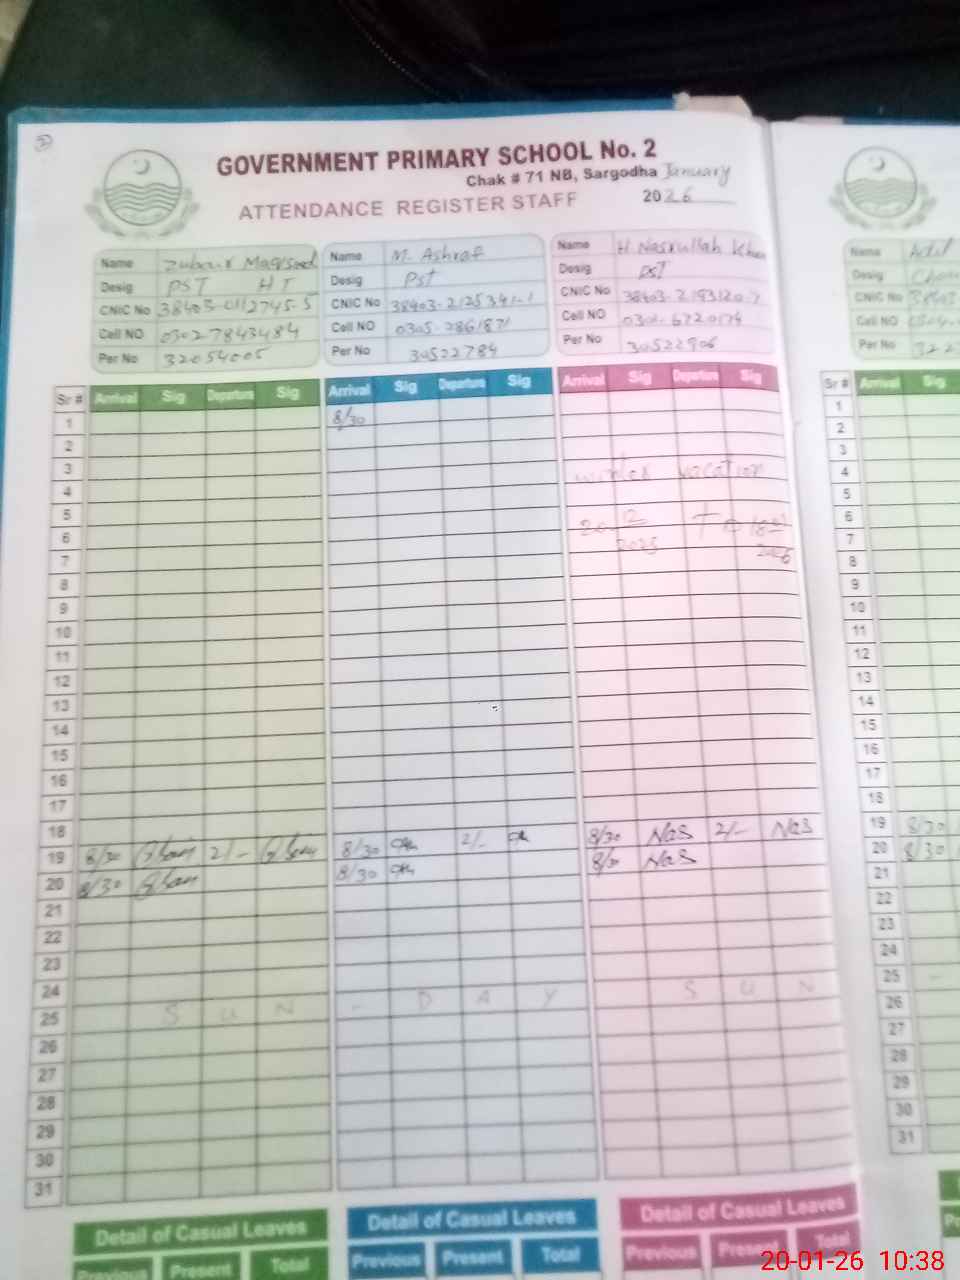 2
GOVERNMENT PRIMARY SCHOOL No. 2
Chak # 71 NB, Sargodha January
ATTENDANCE REGISTER STAFF 2026
Name Zubair Maqsood
Desig PST HT
CNIC No 38403-0112745-5
Cell NO 03027843484
Per No 32054005
Name M. Ashraf
Desig Pst
CNIC No 38403-2125341-1
Cell NO 0305-7861871
Per No 30522784
Name H. Nasrullah Khan
Desig PST
CNIC No
Cell NO
Per No 30522906
Name Adil
Desig
CNIC No
Cell NO
Per No
Sr # Arrival Sig Departure Sig Arrival Sig Departure Sig Arrival Sig Departure Sig Sr # Arrival Sig
1 8/30 1
2 2
3 3
4 winter vacation 4
5 5
6 6
7 2025 2026 7
8 8
9 9
10 10
11 11
12 12
13 13
14 14
15 15
16 16
17 17
18 18
19 8/30 2/- 8/30 2/- 8/30 Nas 2/- Nas 19 8/30
20 8/30 8/30 Nas 20 8/30
21 21
22 22
23 23
24 24
25 S U N - D A Y S U N 25 -
26 26
27 27
28 28
29 29
30 30
31 31
Detail of Casual Leaves Detail of Casual Leaves Detail of Casual Leaves
Previous Present Total Previous Present Total Previous Present Total
20-01-26 10:38